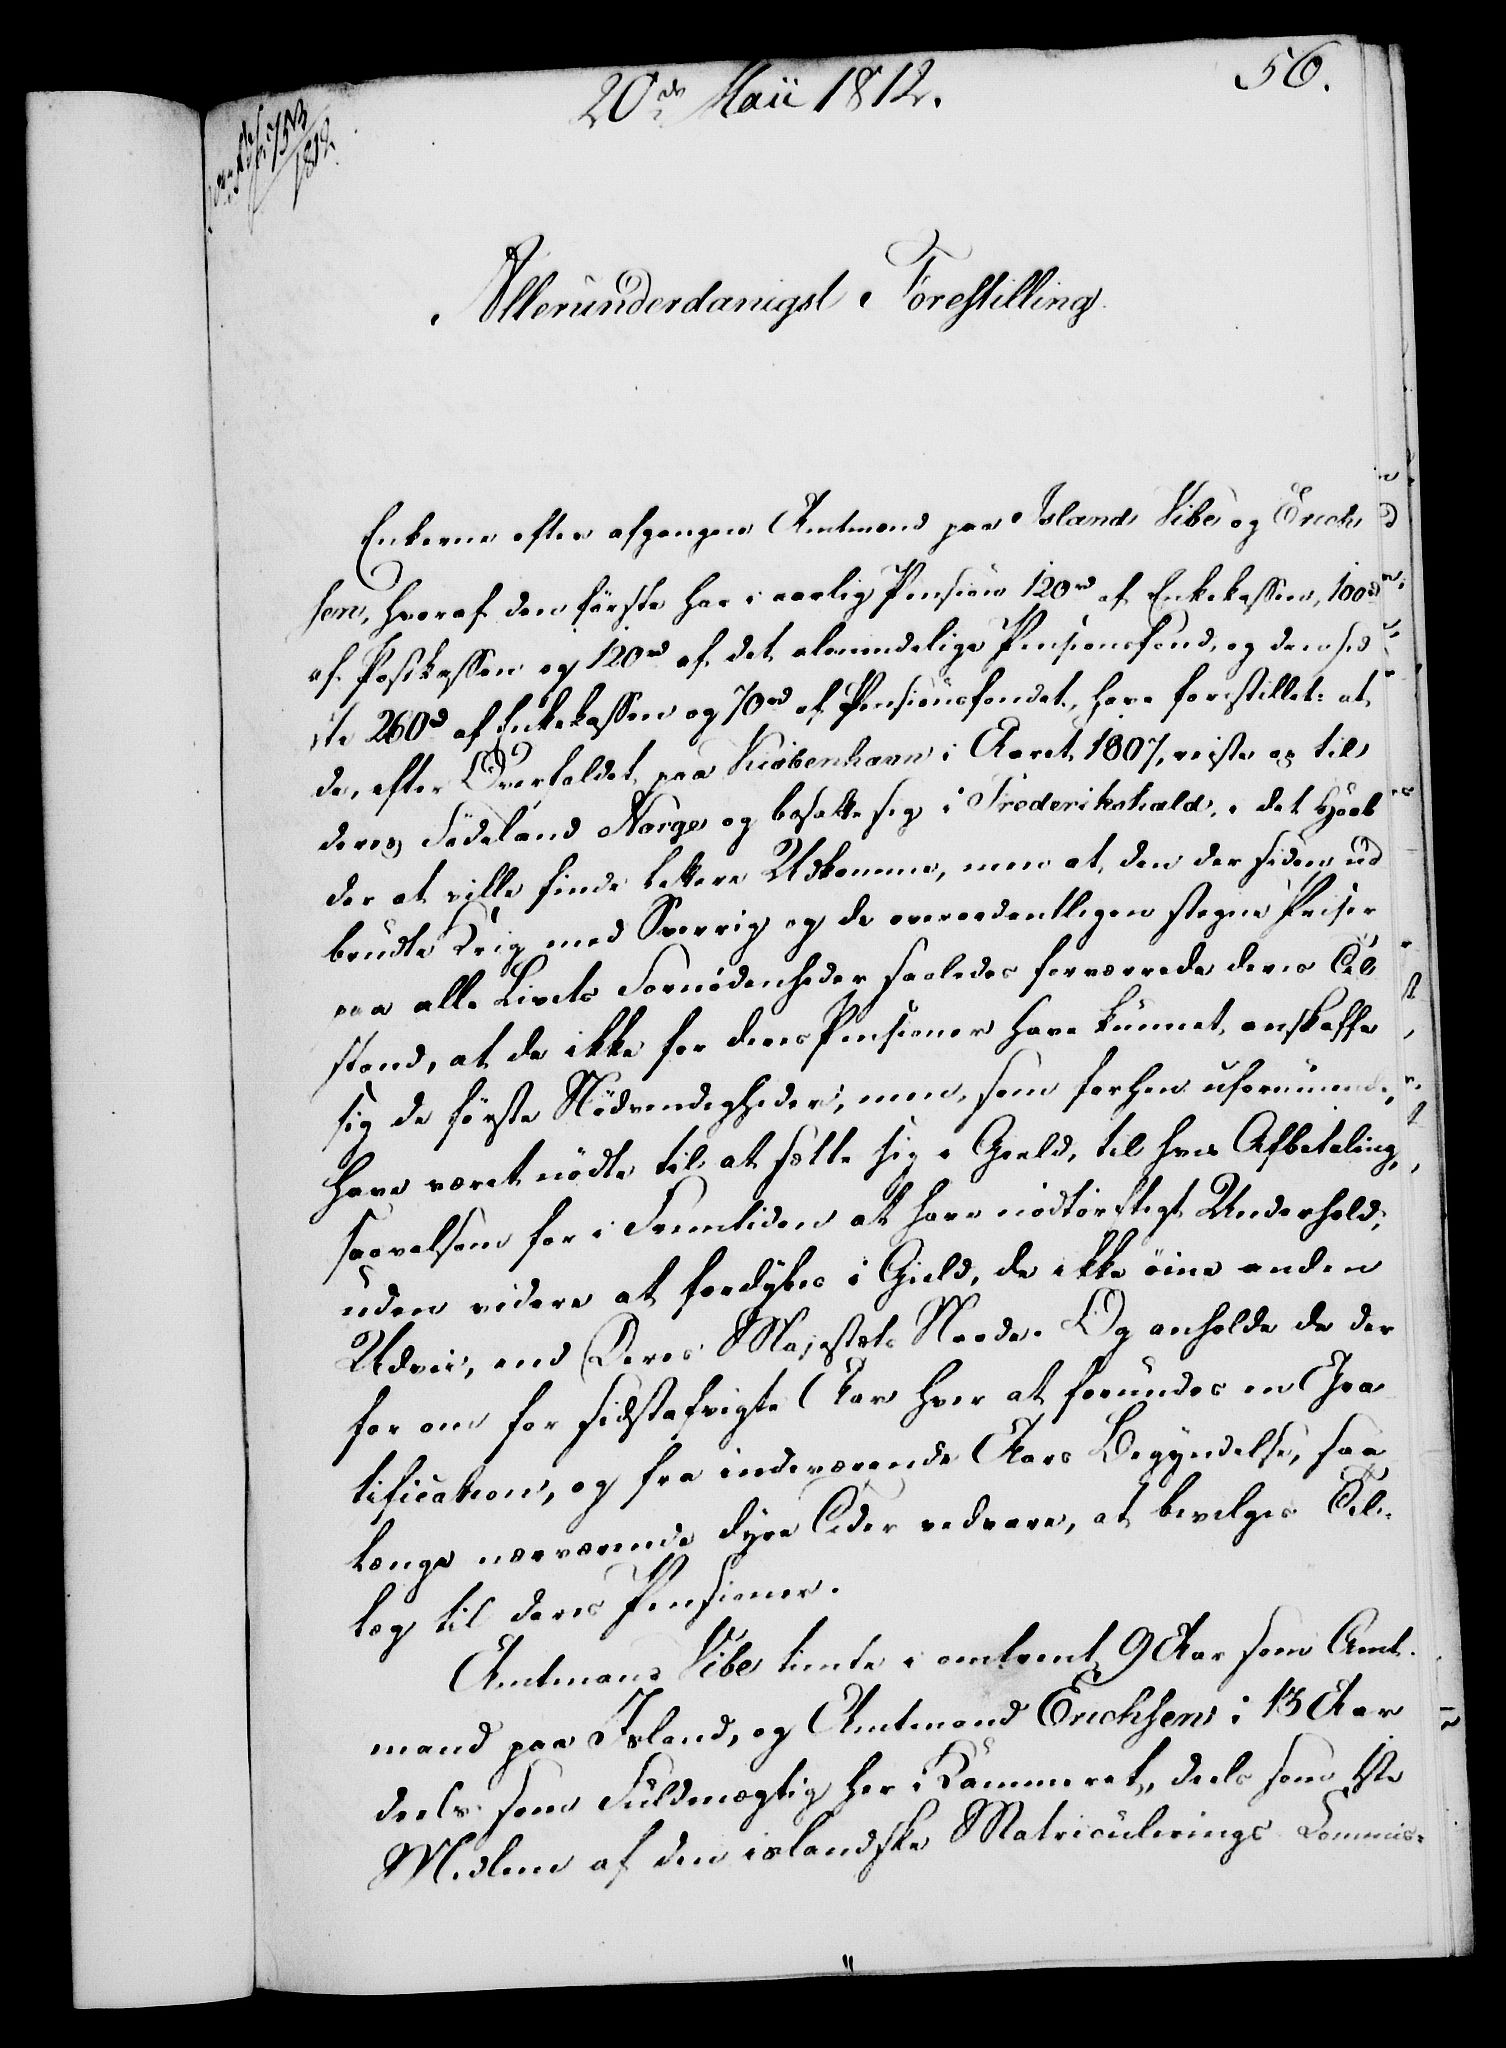 20de Maii 1812.
56.
1812.
Allerunderdanigst Forestilling
Enkerne efter afgangne Amtmand paa Island Vibe og Erich
sen, hvoraf den første har i aarlig Pension 120rd af Enkekassen, 100rd
af Postkassen og 120rd af det almindelige Pensionsfond, og den sid
ste 260rd af Enkekassen og 70rd af Pensionsfondet, have forestillet: at
de, efter Overfaldet paa Kiøbenhavn i Aaret 1807, reiste op til
deres Fødeland Norge og bosatte sig i Frederikshald, i det Haab
der at ville finde lettere Udkomme, men at den der siden ud
brudte Krig med Sverrig og de overordentligen stegne Priser
paa alle Livets Fornødenheder saaledes forværrede deres Til
stand, at de ikke for deres Pensioner have kunnet anskaffe
sig de første Nødvendigheder, men, som forhen uformuende,
have været nødte til at sætte sig i Gield, til hvis Afbetaling,
saavelsom for i Fremtiden at have nødtørftigt Underhold,
uden videre at fordybes i Gield, de ikke øine anden
Udvei, end Deres Majestæts Naade. Og anholde de der
for om for sidstafvigte Aar hver at forundes en Gra
tification, og fra indeværende Aars Begyndelse, saa
længe nærværende dyre Tider vedvare, at bevilges Til-
læg til deres Pensioner.
Amtmand Vibe tiente i omtrent 9 Aar som Amt-
mand paa Island, og Amtmand Erichsen i 13 Aar
deels som Fuldmægtig her i Kammeret, deels som 1ste
Medlem af den islandske Matriculerings Commis-